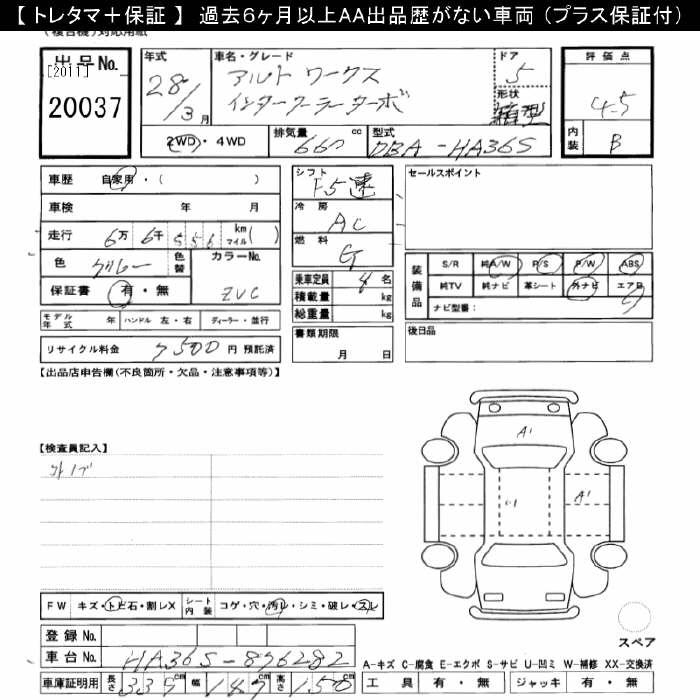 【 トレタマ＋保証 】 過去６ヶ月以上ＡＡ出品歴がない車両 （プラス保証付）
(複合機)対応用紙
出品No. [2011] 20037
年式 28/3月
車名・グレード アルト ワークス インタークーラーターボ
ドア 5
形状 箱型
評価点 4.5
内装 B
2WD・4WD
排気量 660 cc
型式 DBA-HA36S
車歴 自家用・( )
車検 年 月
走行 6万 6千 5 5 6 km マイル( )
色 グレー 色替 カラーNo. ZVC
保証書 有・無
モデル年式 年 ハンドル 左・右 ディーラー・並行
リサイクル料金 7500円 預託済
シフト F5速
冷房 AC
燃料 G
乗車定員 4名
積載量 kg
総重量 kg
書類期限
月 日
セールスポイント
装備品 S/R 純A/W P/S P/W ABS
純TV 純ナビ 革シート 外ナビ エアB
ナビ型番:
後日品
【出品店申告欄(不良箇所・欠品・注意事項等)】
A1
A1
【検査員記入】
外ナビ
FW キズ・トビ石・割レX シート内装 コゲ・穴・汚レ・シミ・破レ・スレ
登録 No.
車台 No. HA36S-896282
車庫証明用 長さ 339cm 幅 147cm 高さ 150cm
スペア
A-キズ C-腐食 E-エクボ S-サビ U-凹ミ W-補修 XX-交換済
工具 有・無 ジャッキ 有・無